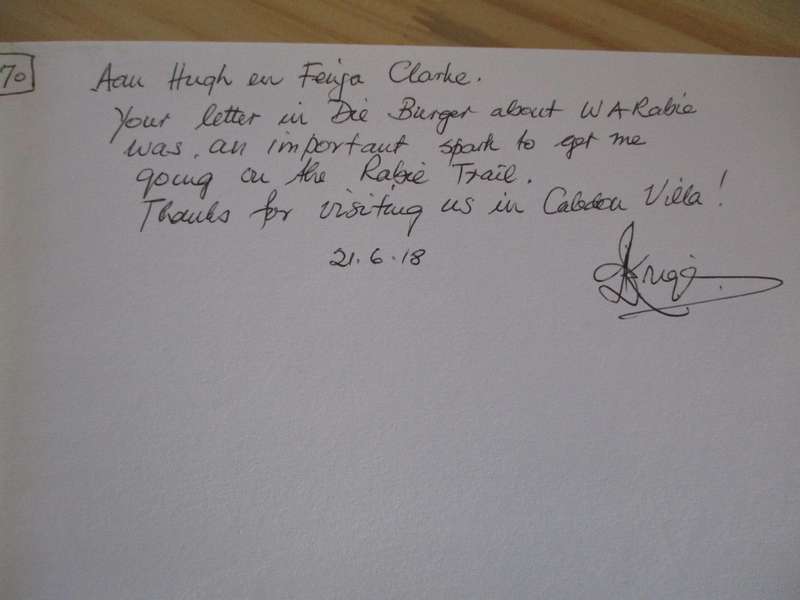 70
Aan Hugh en Fenja Clarke.
Your letter in Die Burger about WA Rabie
was an important spark to get me
going on the Rabie Trail.
Thanks for visiting us in Caledon Villa!
21.6.18
Krige